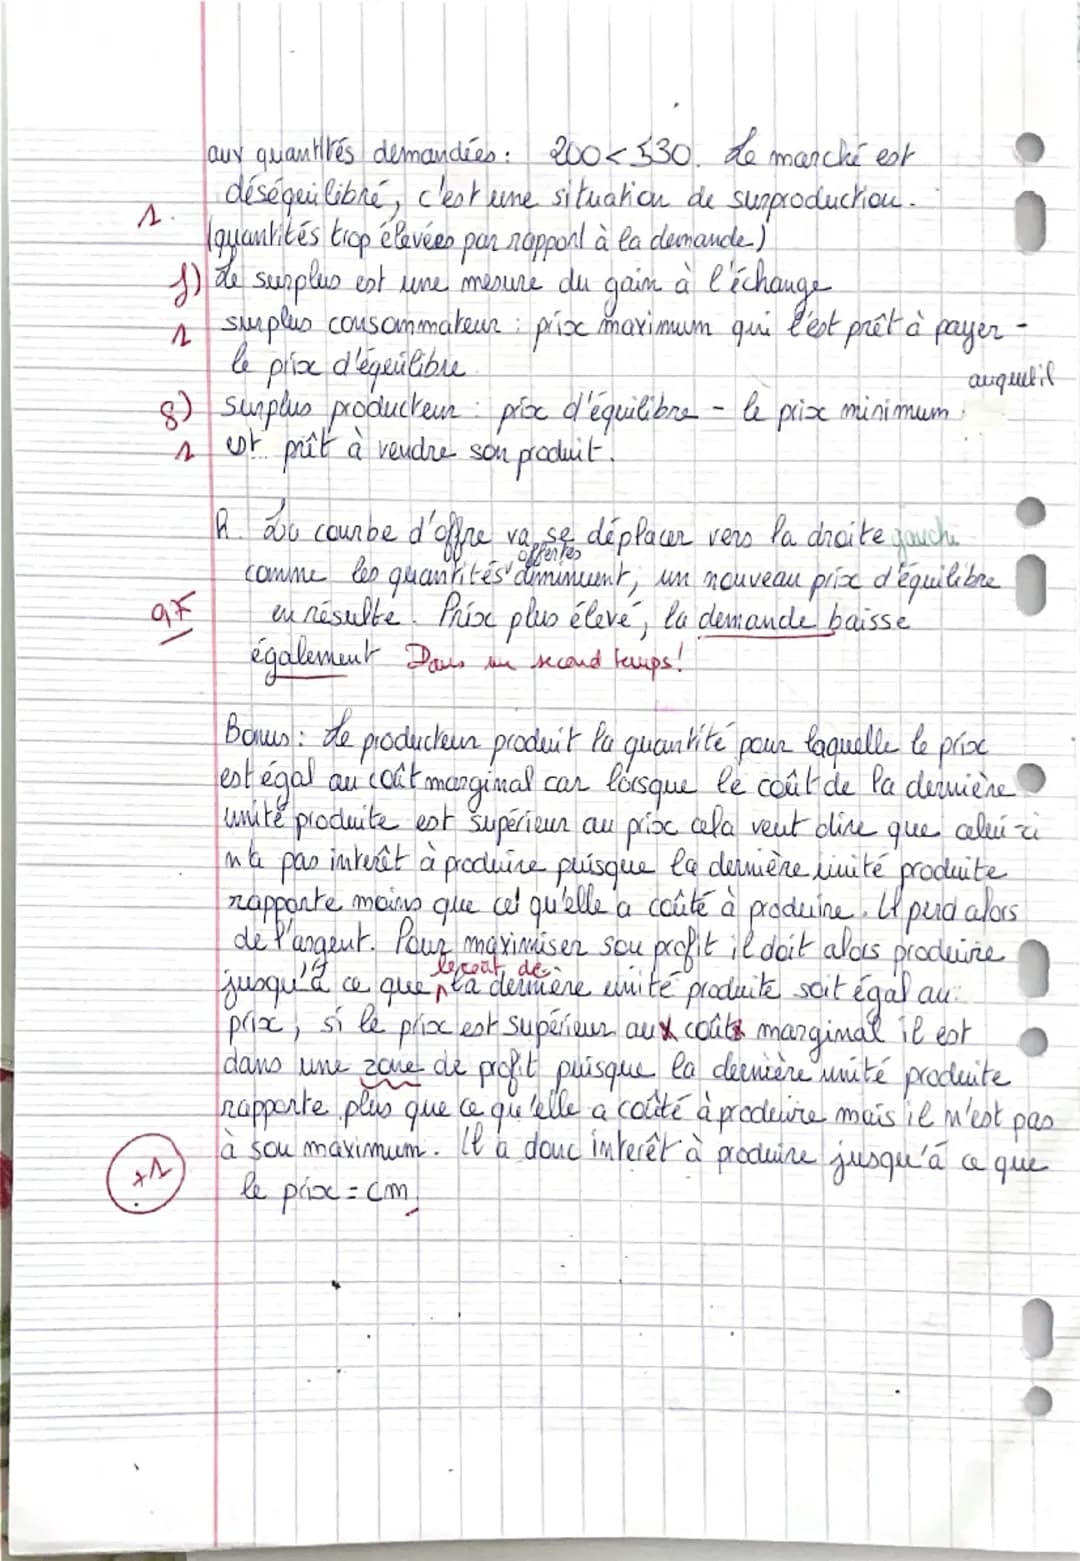 aux quantités demandées : 200 < 530. Le marché est
déséquilibré, c'est une situation de surproduction.
1.
(quantités trop élevées par rapport à la demande)
f) Le surplus est une mesure du gain à l'échange
1 surplus consommateur : prix maximum qui l'est prêt à payer -
le prix d'équilibre
auquel il
g) surplus producteur : prix d'équilibre - le prix minimum
1 est prêt à vendre son produit.
h. La courbe d'offre va se déplacer vers la droite gauche
offertes
comme les quantités diminuent, un nouveau prix d'équilibre
en résulte. Prix plus élevé, la demande baisse
également Dans un second temps!
Bonus : Le producteur produit la quantité pour laquelle le prix
est égal au coût marginal car lorsque le coût de la dernière
unité produite est supérieur au prix cela veut dire que celui-ci
n'a pas interêt à produire puisque la dernière unité produite
rapporte moins que cel qu'elle a coûté à produire. Il perd alors
de l'argent. Pour maximiser son profit il doit alors produire
le coût de
jusqu'à ce que la dernière unité produite soit égal au
prix, si le prix est supérieur aux coûts marginal il est
dans une zone de profit puisque la dernière unité produite
rapporte plus que ce qu'elle a coûté à produire mais il n'est pas
à son maximum. Il a donc interêt à produire jusqu'à ce que
+1
le prix = Cm